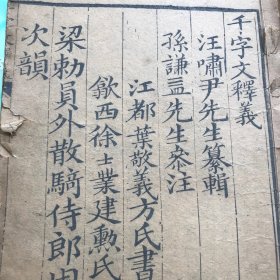 千字文釋義
汪嘯尹先生纂輯
孫謙益先生叅注
江都葉敬義方氏書
歙西徐士業建勳氏
梁勅員外散騎侍郎周
次韻